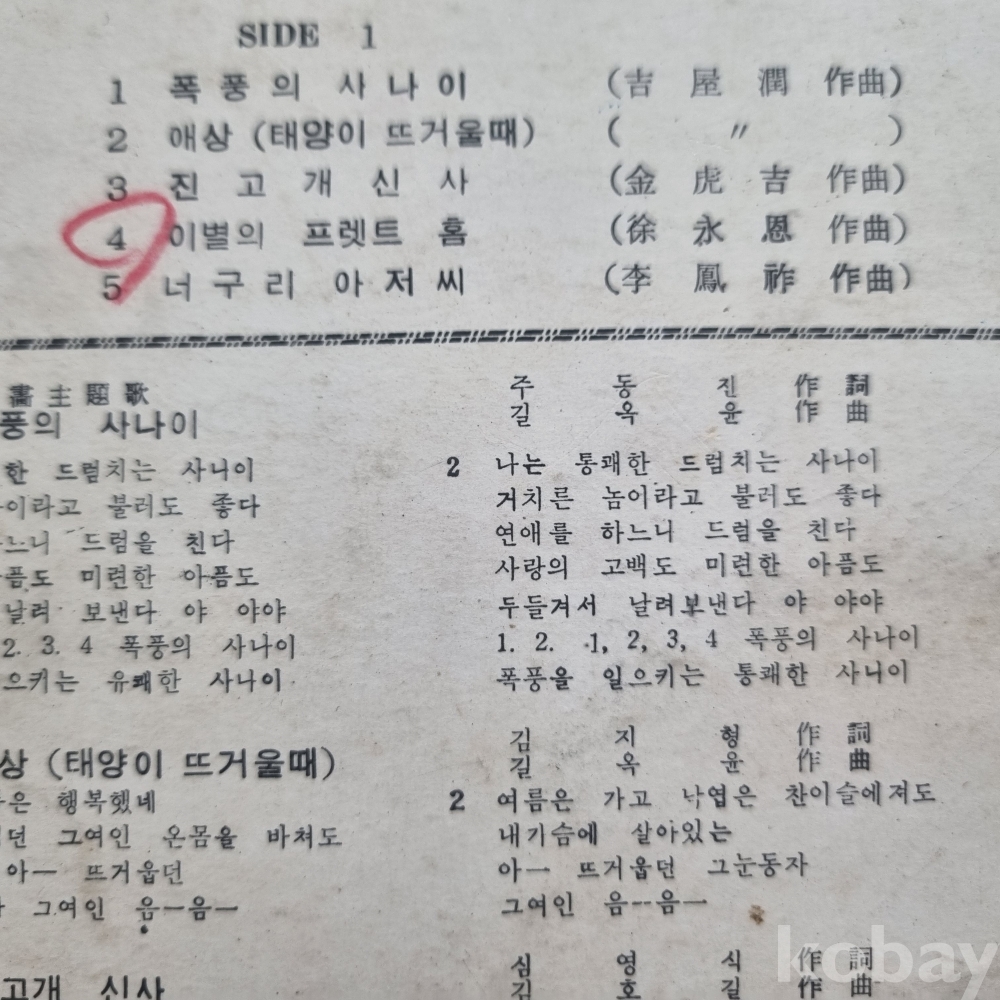 SIDE 1
1 폭풍의 사나이 (吉屋潤 作曲)
2 애상 (태양이 뜨거울때) ( 〃 )
3 진고개신사 (金虎吉 作曲)
4 이별의 프렛트 홈 (徐永恩 作曲)
5 너구리 아저씨 (李鳳祚 作曲)
畵主題歌
풍의 사나이
주동진 作詞
길옥윤 作曲
한 드럼치는 사나이
이라고 불러도 좋다
느니 드럼을 친다
픔도 미련한 아픔도
날려 보낸다 야 야야
2. 3. 4 폭풍의 사나이
으키는 유쾌한 사나이
2 나는 통쾌한 드럼치는 사나이
거치른 놈이라고 불러도 좋다
연애를 하느니 드럼을 친다
사랑의 고백도 미련한 아픔도
두들겨서 날려보낸다 야 야야
1. 2. 1, 2, 3, 4 폭풍의 사나이
폭풍을 일으키는 통쾌한 사나이
상 (태양이 뜨거울때)
김지형 作詞
길옥윤 作曲
은 행복했네
던 그여인 온몸을 바쳐도
아ー 뜨거웁던
그여인 음ー음ー
2 여름은 가고 낙엽은 찬이슬에져도
내기슴에 살아있는
아ー 뜨거웁던 그눈동자
그여인 음--음ー
고개 신사
심영식 作詞
김호길 作曲
kobay